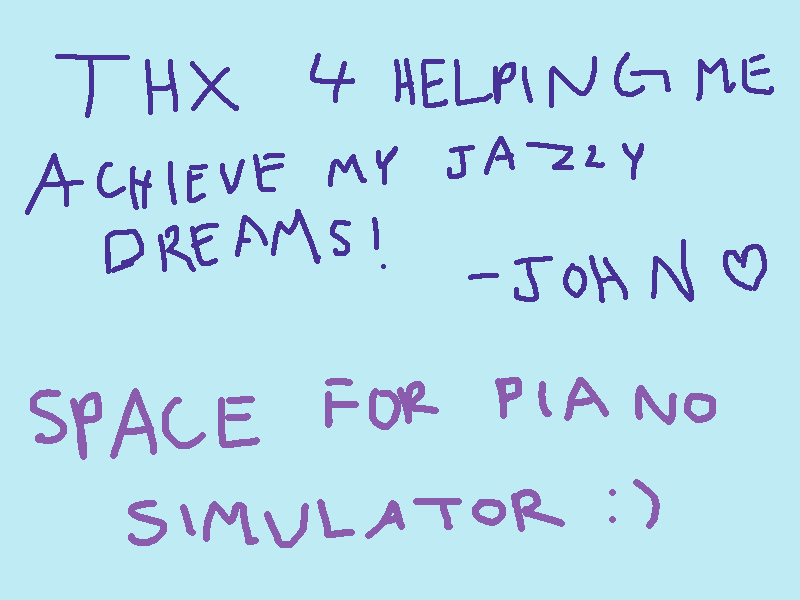 THX 4 HELPING ME
ACHIEVE MY JAZZY
DREAMS!
-JOHN ♡
SPACE FOR PIANO
SIMULATOR :)